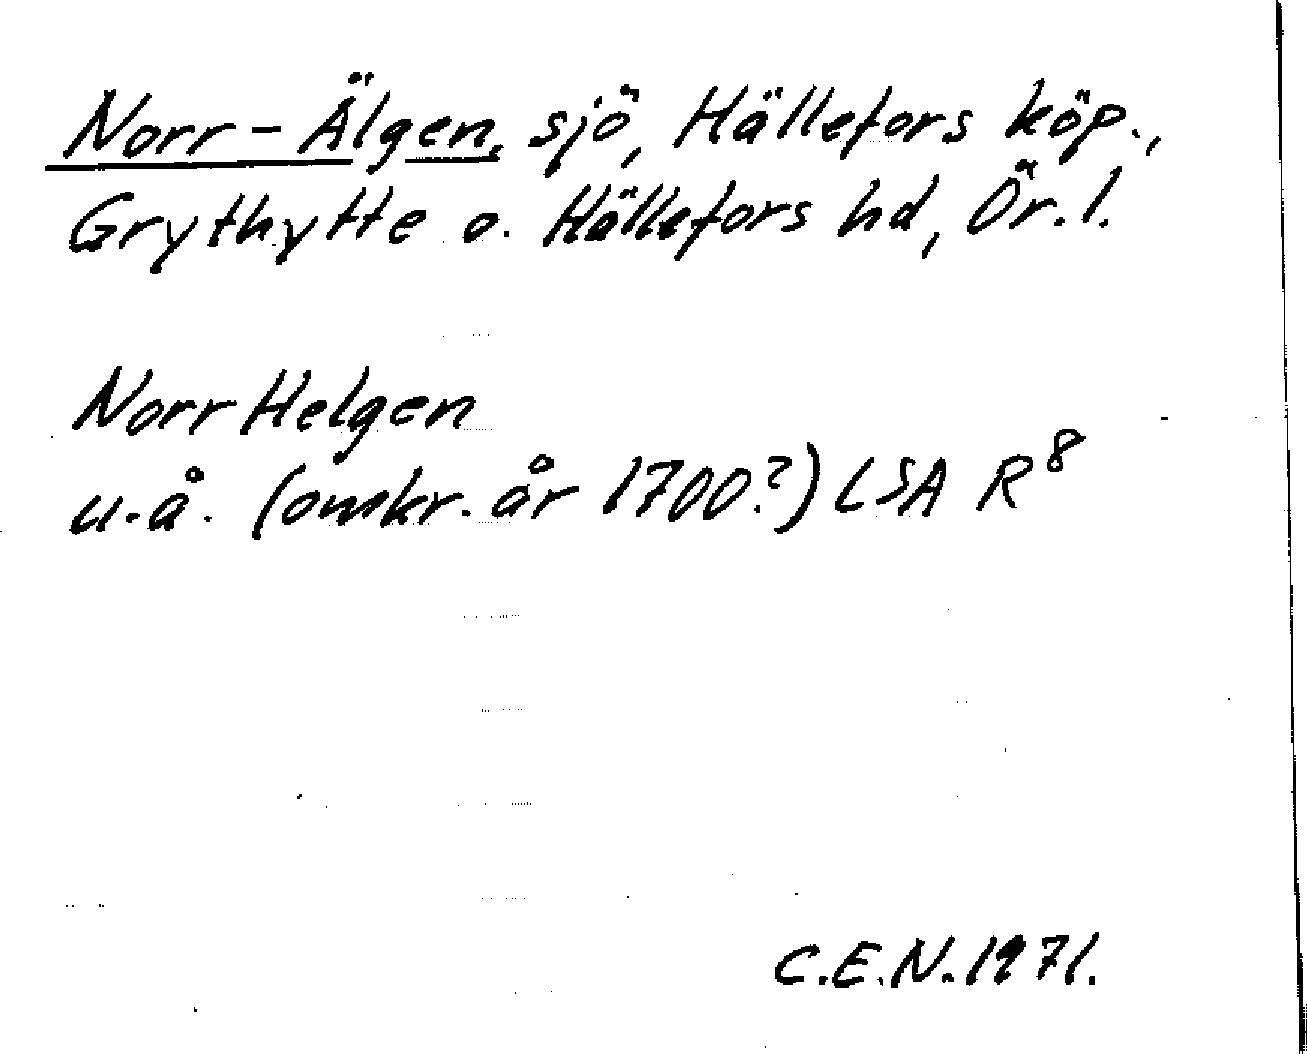 Norr-Älgen, sjö, Hällefors köp.,
Grythytte o. Hällefors hd, Ör.l.
Norr Helgen
u.å. (omkr. år 1700?) LSA R⁸
C.E.N. 1971.